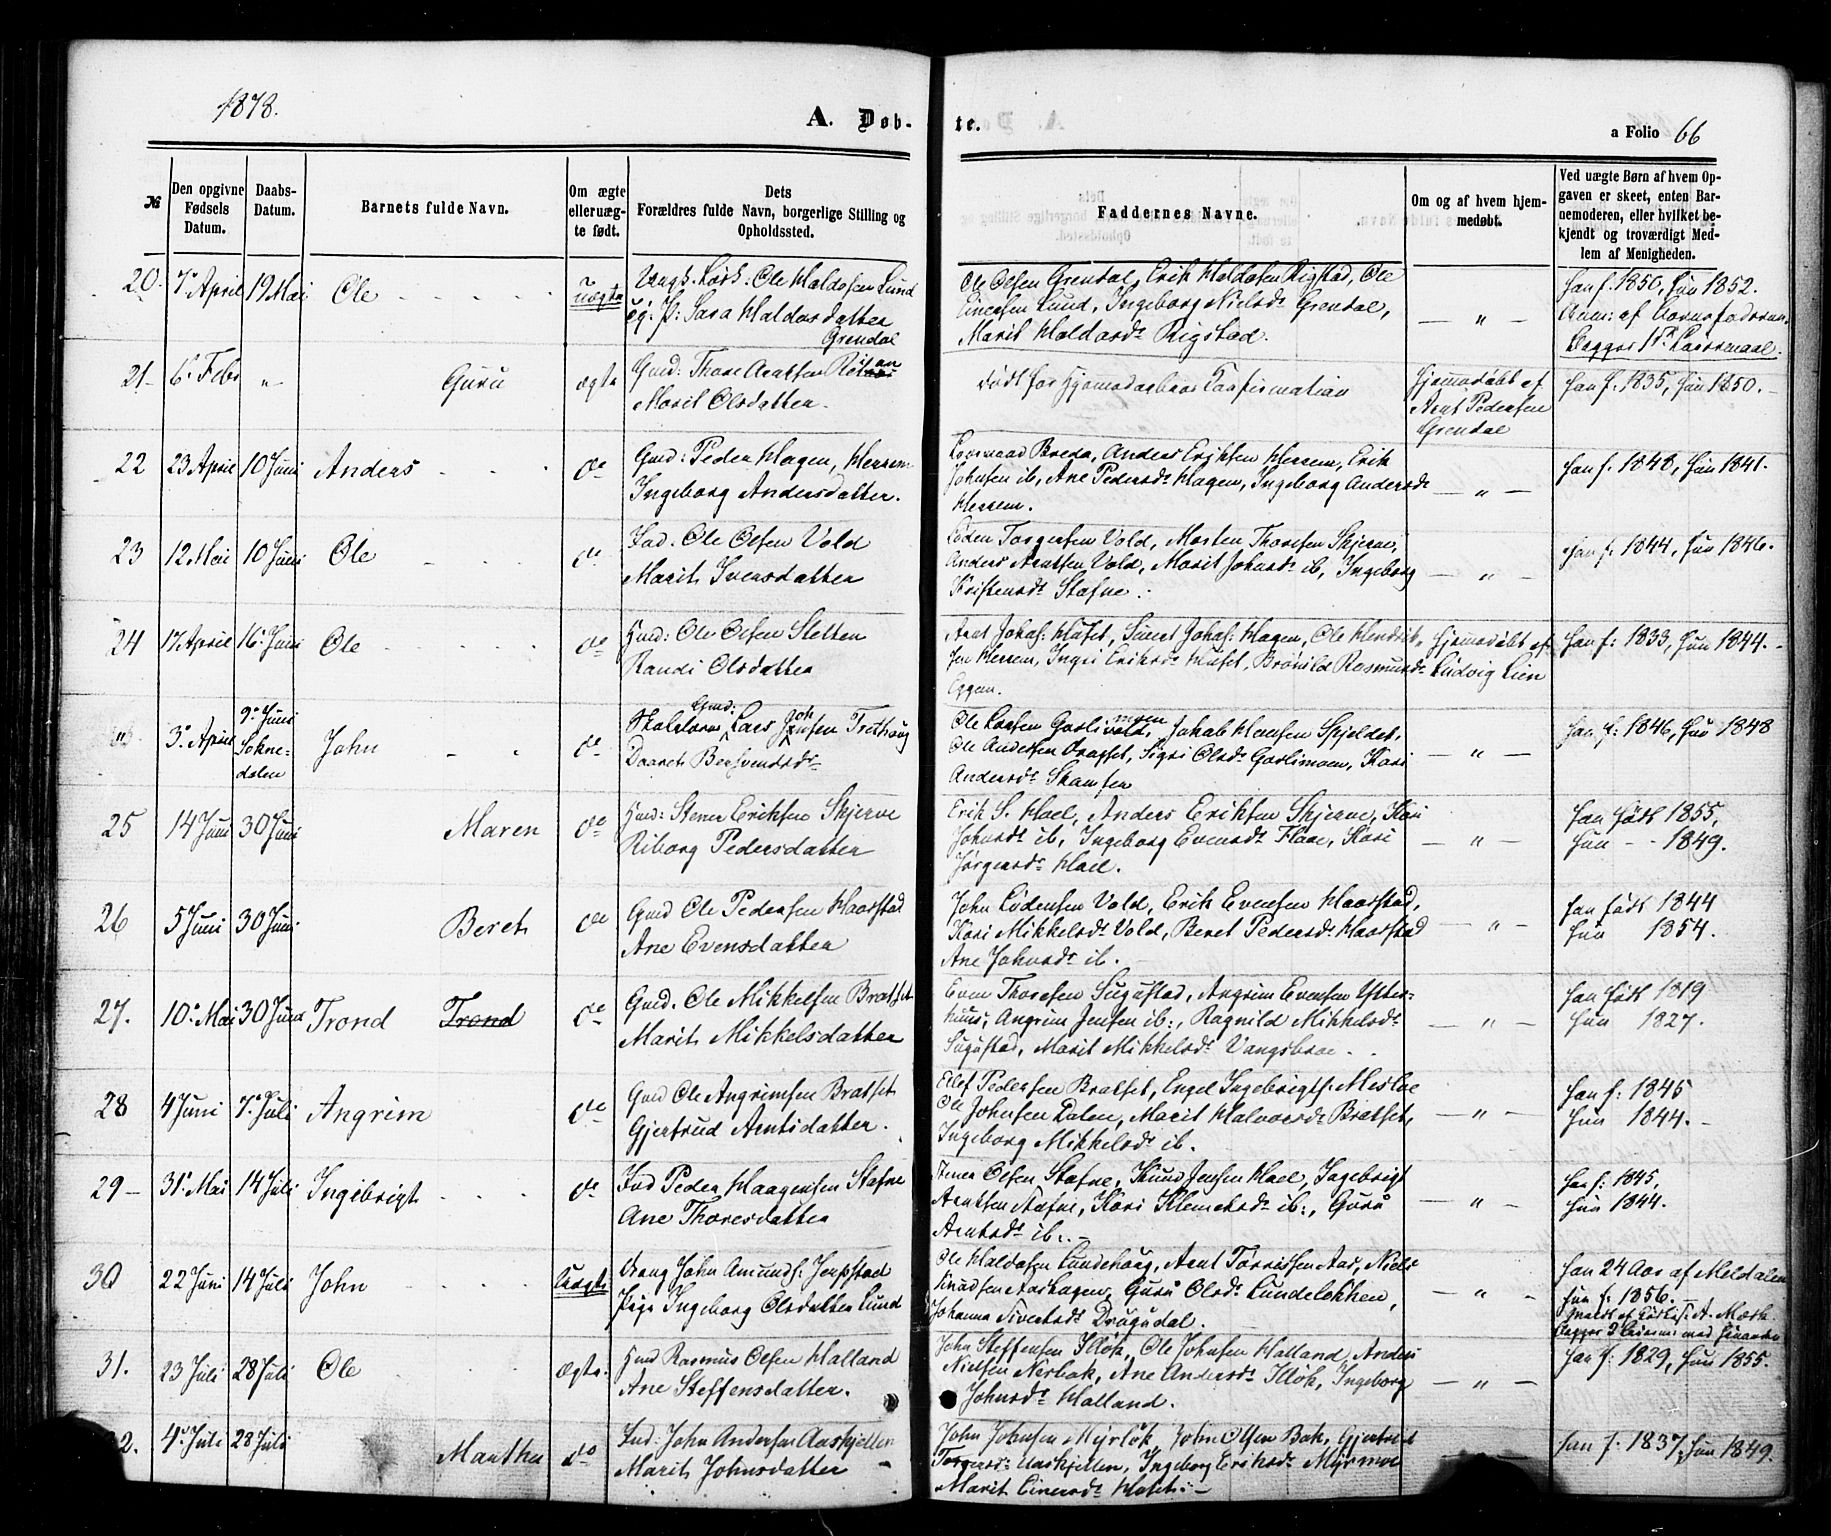 1878.
A. Døb-
te.
a Folio 66
№
Den opgivne Fødsels Datum.
Daabs-Datum.
Barnets fulde Navn.
Om ægte eller uæg-te født.
Dets Forældres fulde Navn, borgerlige Stilling og Opholdssted.
Faddernes Navne.
Om og af hvem hjem-medøbt.
Ved uægte Børn af hvem Op-gaven er skeet, enten Bar-nemoderen, eller hvilket be-kjendt og troværdigt Med-lem af Menigheden.
20. 7 April 19 Mai Ole uægte
Ungk. : Ole Haldosen Lund
og P: Sara Haldorsdatter
Grendal
Ole Olsen Grendal, Erik Haldosen Rigstad, Ole
Einersen Lund, Ingeborg Nielsdr Grendal,
Marit Haldorsdr Rigstad.
— „ —
Han f. 1850, hun 1852.
21- 6 Febr „ Guru ægte
Gmd: Thore Arntsen
Marit Olsdatter.
død før Hjemmedaabens Confirmation
Hjemmedøbt af
Arnt Pedersen
Grendal
Han f. 1835, hun 1850.-
22 23 April 10 Juni Anders do
Gmd: Peder Hagen, Herrem
Ingeborg Andersdatter.
Brede, Anders Eriksen Herrem, Erik
Johnsen ib, Ane Pedersdr Hagen, Ingeborg Andersdr
Herrem.
— „ —
Han f. 1848, hun 1841.
23 12 Mai 10 Juni Ole do
Ind: Ole Olsen Vold
Marit Iversdatter
Loden Torgersen Vold, Morten Thoresen Skjerve,
Anders Arntsen Vold, Marit Johnsdr ib, Ingeborg
Kristensdr Stafne.
— „ —
Han f. 1844, hun 1846.
24 17 April 16 Juni Ole do
Hmd: Ole Olsen Sletten
Randi Olsdatter
Arnt Johns: Huset, Simet Johns: Hagen, Ole Hendrik-
sen Herrem, Ingri Eriksdr Huset, Brønild Rasmusdr
Eggen.
Hjemmedøbt af
Ludvig Lien
Han f. 1833, hun 1844.-
„ 3 April 9 Juni
Soknedalen
John do
Gmd:
Lars Johnsen Trethaug
Daaret Bersvendsdr
Ole Larsen Gaslimoen, Jakob Hansen Skjeldet,
Ole Andersen Qvasset, Sigri Olsdr Gaslimoen, Kari
Andersdr Skamfer
„
Han f. 1846, hun 1848
25 14 Juni 30 Juni Maren do
Hmd: Stener Eriksen Skjerve
Riborg Pedersdatter
Erik S. Hoel, Anders Eriksen Skjerve, Kari
Johnsdr ib, Ingeborg Evensdr Flaae, Kari
Jørgensdr Hoel.
— „ —
Han født 1855,
hun - - 1849.
26 5 Juni 30 Juni Beret do
Gmd Ole Pedersen Haarstad
Ane Evensdatter
John Lodensen Vold, Erik Evensen Haarstad,
Kari Mikkelsdr Vold, Beret Pedersdr Haarstad
Ane Johnsdr ib.
— „ —
Han født 1844
hun 1854.
27. 10 Mai 30 Juni Trond Trond do
Gmd. Ole Mikkelsen Bratset
Marit Mikkelsdatter
Even Thoresen Sugustad, Angrim Evensen Ytter-
huus, Angrim Jensen ib:, Ragnild Mikkelsdr
Sugustad, Marit Mikkelsdr Vangsbroe.
— „ —
Han født 1819
hun 1827.
28 4 Juni 7 Juli Angrim do
Gmd Ole Angrimsen Bratset
Gjertrud Arntsdatter.
Ellef Pedersen Bratset, Engel Ingebrigts. Misloe
Ole Johnsen Dalen, Marit Halvorsdr Bratset,
Ingeborg Mikkelsdr ib.
— „ —
Han f. 1845
hun 1844.-
29- 31 Mai 14 Juli Ingebrigt do
Ind Peder Haagensen Stafne
Ane Thoresdatter
Stener Olsen Stafne, Knud Jensen Hoel, Ingebrigt
Arntsen Stafne, Kari Klemetsdr ib:, Guru
Arntsdr ib.-
— „ —
Han f. 1845,
hun 1844.
30 22 Juni 14 Juli John Uægte
Ung John Amunds. Jerpstad
Pige Ingeborg Olsdatter Lund
Ole Haldosen Lundehaug, Arnt Torrissen Aas, Niels
Knudsen Aashagen, Guru Olsdr Lundeløkken,
Johanna Sivertsdr Drugudal.
— „ -
Han 24 Aar af Meldalen
hun f. 1856.
31. 23 Juli 28 Juli Ole Ægte.
Hmd Rasmus Olsen Halland
Ane Steffensdatter.
John Steffensen Illøk, Ole Johnsen Halland, Anders
Nielsen Nerbøk, Ane Andersdr Illøk, Ingeborg
Johnsdr Halland.
— „ —
Han f. 1829, hun 1855.
4 Juli 28 Juli Marthe do
Ind: John Andersen Aaskjelten
Marit Johnsdatter
John Johnsen Myrløk, John Olsen Bak, Gjertrud
Torgersdr Aaskjelten, Ingeborg Eriksdr Myrmoe
Marit Einersdr Huset.-
Han f. 1837, hun 1849.